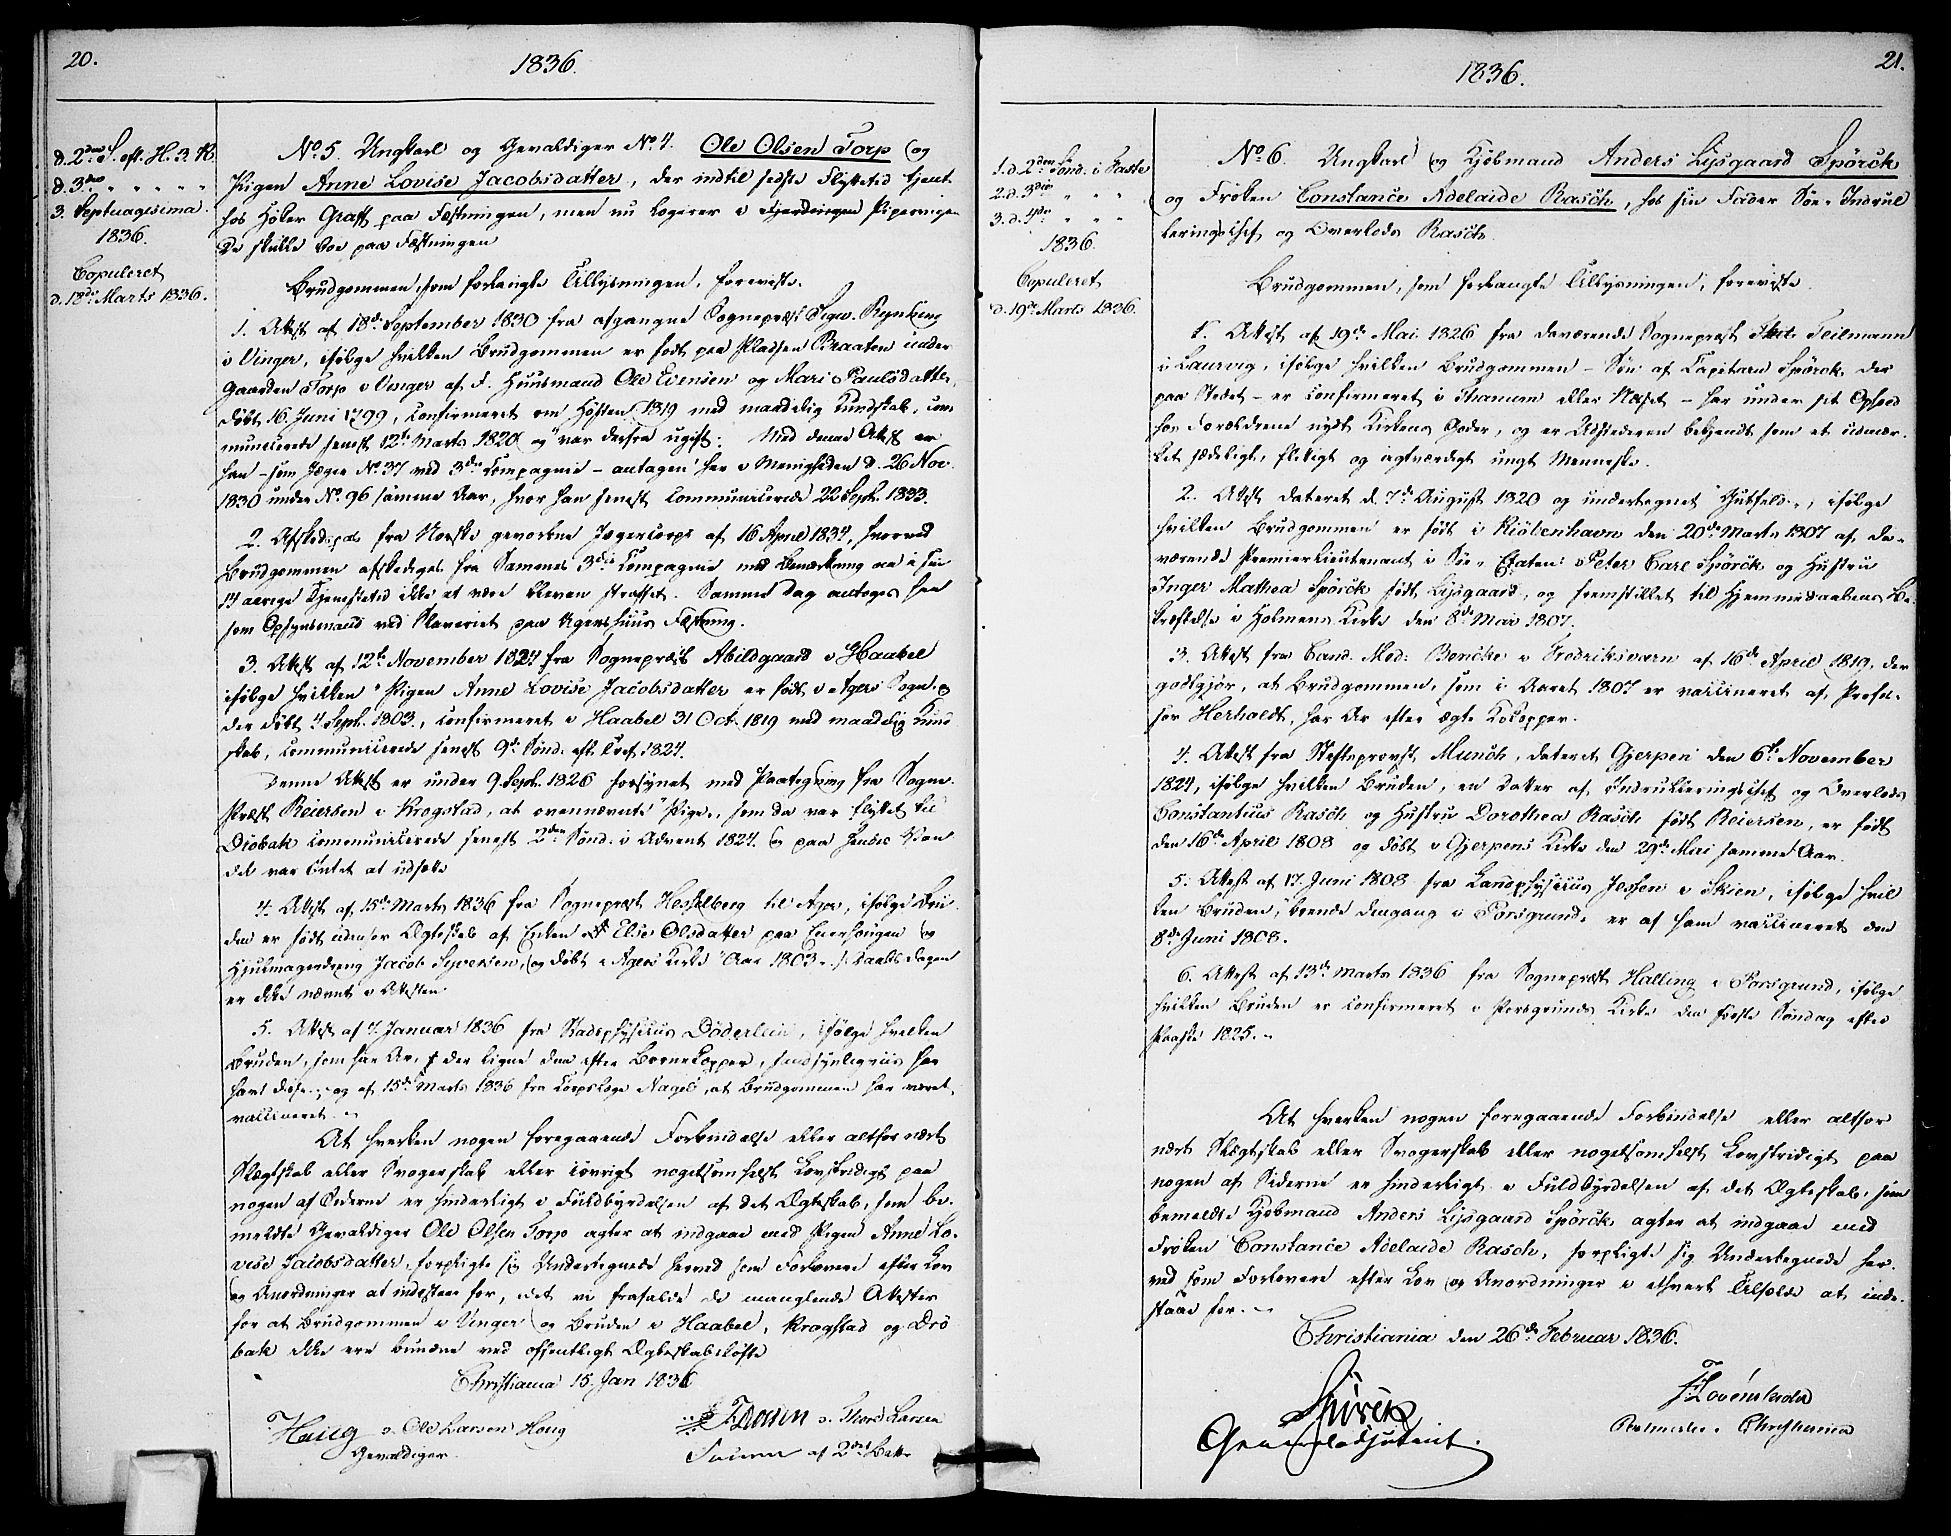 20.
1836.
d. 2den S. eft. H. 3. K.
d. 3die " " " " "
3. Septuagesima.
1836.
Copuleret
d. 18de Marts 1836.
No. 5. Ungkarl og Gevaldiger No. 4. Ole Olsen Torp og
Pigen Anne Lovise Jacobsdatter, der indtil sidste Flyttetid tjent
hos Høker Graff paa Fæstningen, men nu logerer i Pipervigen
De skulle boe paa Fæstningen
Brudgommen, som forlangte Tillysningen, foreviste.
1. Attest af 18de September 1830 fra afgangne Sognepræst Sigw. Rynning
i Vinger, ifølge hvilken Brudgommen er født paa Pladsen Braaten under
Gaarden Torp i Vinger af F. Huusmand Ole Evensen og Mari Paulsdatter,
døbt 16. Juni 1799, confirmeret om Høsten 1819 med maadelig Kundskab, com
municerede senest 12te Marts 1820 og var derfra ugift. Med denne Attest er
han - som Jæger No. 37 ved 3die Compagnie - antagen her i Menigheden d. 26 Nov.
1830 under No. 96 samme Aar, hvor han senest communicerede 22 Sept. 1833.
2. Afskedspas fra Norske gevorbne Jægercorps af 16 April 1834, hvorved
Brudgommen afskediges fra Sammes 3die Compagnie med Bemærkning at i sin
14 aarige Tjenestetid ikke at være bleven straffet. Samme Dag antoges han
som Opsynsmand ved Slaveriet paa Agershuus Fæstning.
3. Attest af 12te November 1824 fra Sognepræst Abildgaard i Haabel
ifølge hvilken Pigen Anne Lovise Jacobsdatter er født i Agers Sogn og
der døbt 4 Sept. 1803, confirmeret i Haabel 31 Oct. 1819 med maadelig Kund
skab, communicerede senest 9de Sønd. eft. Tref. 1824.
Denne Attest er under 9. Sept. 1826 forsynet med Paategning fra Sogne-
Præst Reiersen i Krogstad, at ovennævnte Pige, som da var flyttet til
Drøbak communicerede senest 2den Sønd. i Advent 1824. og paa hendes Van
del var intet at udsætte
4. Attest af 15de Marts 1836 fra Sognepræst Hesselberg til Ager, ifølge Bru
den er født udenfor Ægteskab af Enken Else Olsdatter paa Enerhougen og
Hjulmagerdreng Jacob Syversen, og døbt i Agers Kirke Aar 1803 ./. Daabsdagen
er ikke nævnt i Attesten.
5. Attest af 7. Januar 1836 fra Stadsphysicus Döderlein, ifølge hvilken
Bruden, som har Ar, der ligne dem efter Børnekopper, sandsynligviis har
havt disse. - og af 15de Marts 1836 fra Corpslæge Nagel, at Brudgommen har været
vaccineret. -
At hverken nogen foregaaende Forbindelse eller altfor nært
Slægtskab eller Svogerskab eller iøvrigt nogetsomhelst Lovstridigt paa
nogen af Siderne er hinderligt i Fuldbyrdelsen af det Ægteskab, som be-
meldte Gevaldiger Ole Olsen Torp agter at indgaae med Pigen Anne Lo-
vise Jacobsdatter, forpligte sig Undertegnede herved som Forlovere efter Lov
og Anordninger at indestaae for, idet vi frafalde de manglende Attester
for at Brudgommen i Vinger og Bruden i Haabel, Krogstad og Drø
bak ikke ere bundne ved offentligt Ægteskabsløfte
Christiania 15. Jan 1836
Houg Ole Larsen Houg
Gevaldiger.
TLarsen Thord Larsen
af 2det
21.
1836.
1. d. 2den Sønd. i Faste
2. d. 3die " " "
3. d. 4de " " "
1836.
Copuleret
d. 19de Marts 1836.
No. 6. Ungkarl og Kjøbmand Anders Lysgaard Spörck
og Frøken Constance Adelaide Rasch, hos sin Fader Søe-Indrul
leringschef og Overlods Rasch.
Brudgommen, som forlangte Tillysningen, foreviste.
1. Attest af 19de Mai 1826 fra daværende Sognepræst Teilmann
i Laurvig, ifølge hvilken Brudgommen - Søn af Capitain Spörck der
paa Stedet - er confirmeret i Thanum eller Næset - har under sit Ophold
hos Forældrene nydt Kirkens Goder, og er Udstederen bekjendt som et udmær-
ket sædeligt, flittigt og agtværdigt ungt Menneske.
2. Attest dateret d. 7de August 1820 og undertegnet Hvitfeldt, ifølge
hvilken Brudgommen er født i Kiöbenhavn den 20de Marts 1807 af da-
værende Premierlieutenant i Søe-Etaten: Peter Carl Spörck og Hustru
Inger Mathea Spörck født Lysgaard, og fremstillet til Hjemmedaabens Be-
kræftelse i Holmens Kirke den 8de Mai 1807.
3. Attest fra Cand. Med: Bencke i Fredriksværn af 16de April 1819, der
godtgjør, at Brudgommen, som i Aaret 1807 er vaccineret af Profes-
sor Herholdt, har Ar efter ægte Kokopper.
4. Attest fra Stiftsprovst Munch, dateret Gjerpen den 6te November
1824, ifølge hvilken Bruden, en Datter af Indrulleringschef og Overlods
Constantius Rasch og Hustru Dorothea Rasch født Reiersen, er født
den 16de April 1808 og døbt i Gjerpens Kirke den 29de Mai samme Aar.
5. Attest af 17. Juni 1808 fra Landphysicus Jessen i Skien, ifølge hvil
ken Bruden, boende dengang i Porsgrund, er af ham vaccineret den
8de Juni 1808.
6. Attest af 13de Marts 1836 fra Sognepræst Halling i Porsgrund, ifølge
hvilken Bruden er confirmeret i Porsgrunds Kirke den første Søndag efter
Paaske 1825. -
At hverken nogen foregaaende Forbindelse eller altfor
nært Slægtskab eller Svogerskab eller nogetsomhelst Lovstridigt paa
nogen af Siderne er hinderligt i Fuldbyrdelsen af det Ægteskab, som
bemeldte Kjøbmand Anders Lysgaard Spörck agter at indgaae med
Frøken Constance Adelaide Rasch, forpligte sig Undertegnede her-
ved som Forlovere efter Lov og Anordninger i ethvert Tilfælde at inde-
staae for. -
Christiania den 26de Februar 1836.
Spörck
Generaladjutant.
FLövenskiold
Christiania